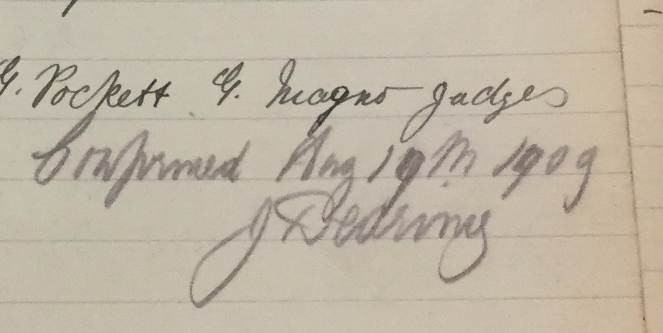 G. Pockett G. Magno Judges
Confirmed Aug 19th 1909
J Dearing